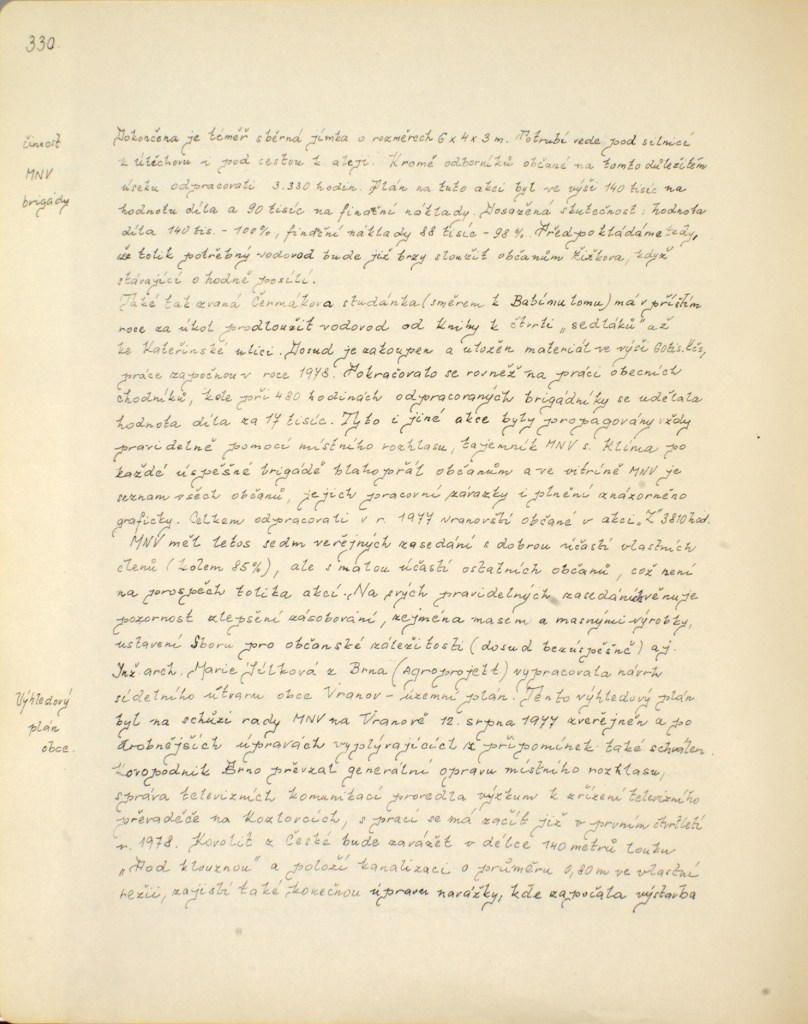 330.
činnost
MNV
brigády
Dokončena je téměř sběrná jímka o rozměrech 6 x 4 x 3 m. Potrubí vede pod silnicí
z Útěchova i pod cestou k aleji. Kromě odborníků občané na tomto důležitém
úseku odpracovali 3.330 hodin. Plán na tuto akci byl ve výši 140 tisíc na
hodnotu díla a 90 tisíc na finanční náklady. Dosažená skutečnost: hodnota
díla 140 tis. - 100%, finanční náklady 88 tisíc - 98%. Předpokládáme tedy,
že tolik potřebný vodovod bude již brzy sloužit občanům Žižkova, když
stávající o hodně posílí.
Také tak zvaná Čermákova studánka (směrem k Babímu lomu) má v příštím
roce za úkol prodloužit vodovod od Knihy k čtvrti "sedláků" až
ke Kateřinské ulici. Dosud je zakoupen a uložen materiál ve výši 60 tis. Kčs,
práce započnou v roce 1978. Pokračovalo se rovněž na práci obecních
chodníků, kde při 480 hodinách odpracovaných brigádníky se udělala
hodnota díla za 17 tisíc. Tyto i jiné akce byly propagovány vždy
pravidelně pomocí místního rozhlasu, tajemník MNV s. Klíma po
každé úspěšné brigádě blahopřál občanům a ve vitríně MNV je
seznam všech občanů, jejich pracovní závazky i plnění znázorněno
graficky. Celkem odpracovali v r. 1977 vranovští občané v akci "Z" 3810 hod.
MNV měl letos sedm veřejných zasedání s dobrou účastí vlastních
členů (kolem 85%), ale s malou účastí ostatních občanů, což není
na prospěch tolika akcí. Na svých pravidelných zasedáních věnuje
pozornost zlepšení zásobování, zejména masem a masnými výrobky,
ustavení Sboru pro občanské záležitosti (dosud bezúspěšně) aj.
Výhledový
plán
obce.
Inž. arch. Marie Jílková z Brna (Agroprojekt) vypracovala návrh
sídelního útvaru obce Vranov - územní plán. Tento výhledový plán
byl na schůzi rady MNV na Vranově 12. srpna 1977 zveřejněn a po
drobnějších úpravách vyplývajících z připomínek také schválen.
Kovopodnik Brno převzal generální opravu místního rozhlasu,
správa televizních komunikací provedla výzkum k zřízení televizního
převaděče na Kozlovcích, s prací se má začít již v prvním čtvrtletí
r. 1978. Kovolit z České bude zavážet v délce 140 metrů louku
"Pod klouznou" a položí kanalizaci o průměru 0,80 m ve vlastní
režii, zajistí také konečnou úpravu navážky, kde započala výstavba